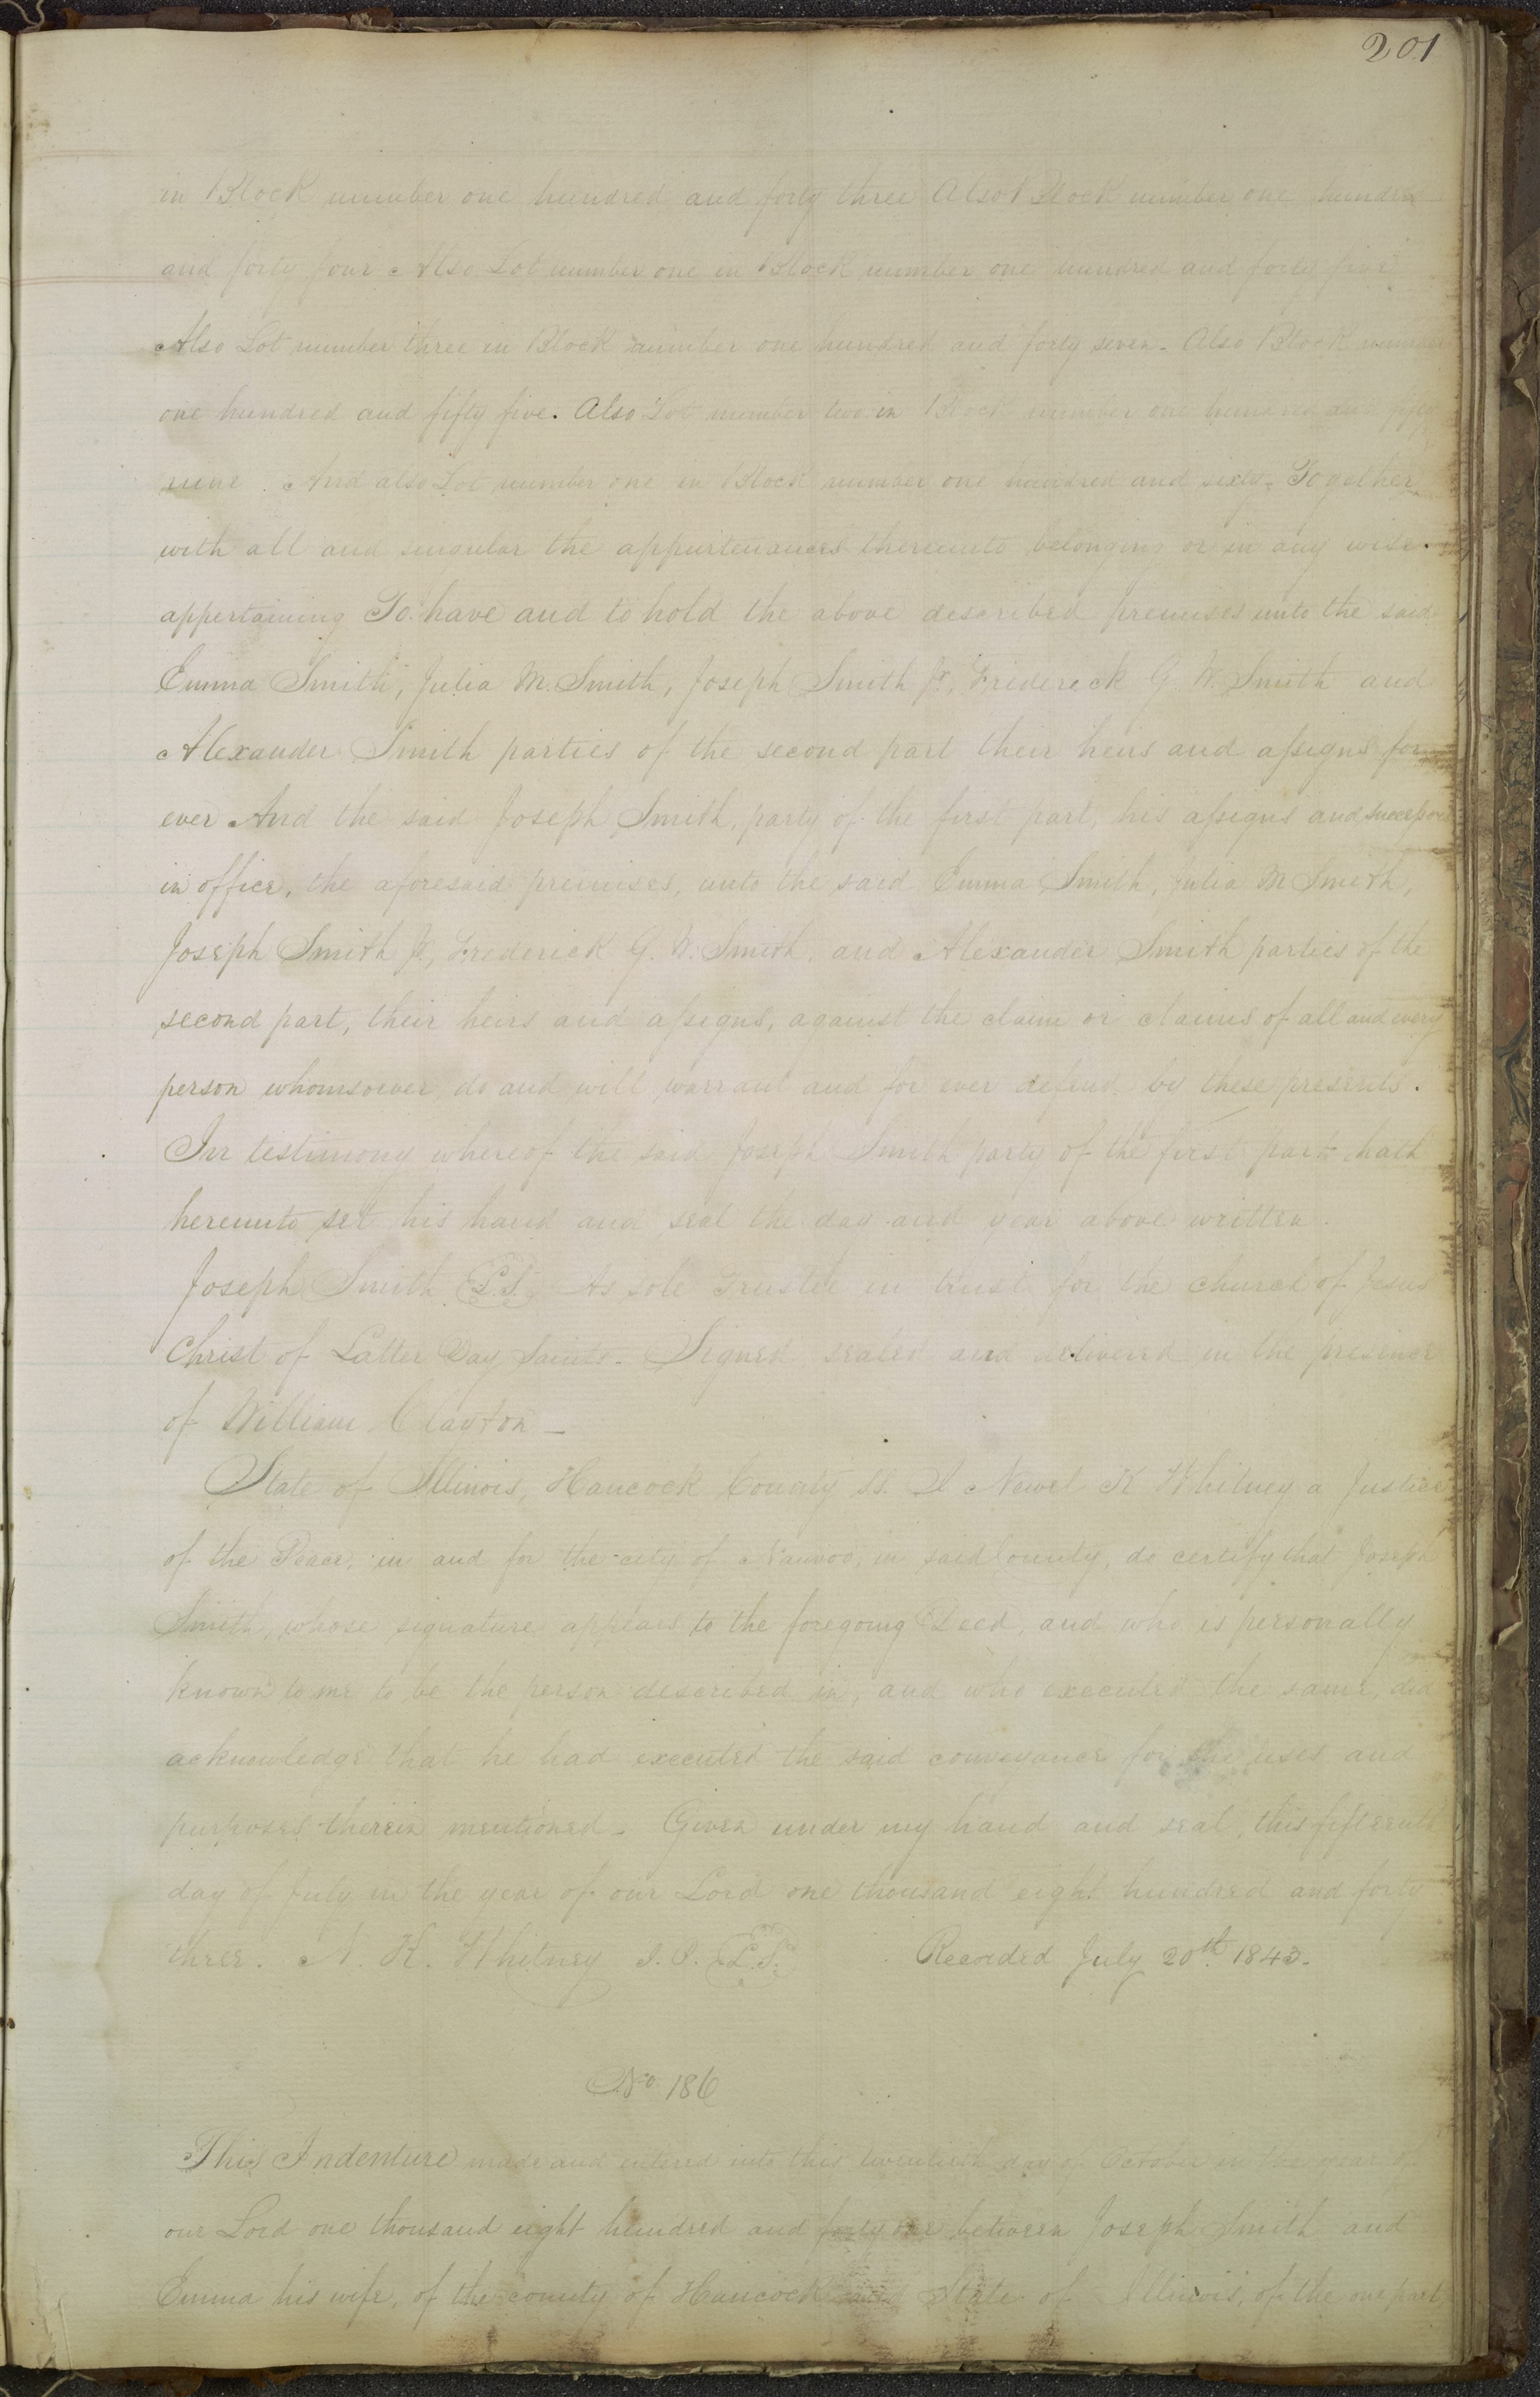 201
in Block number one hundred and forty three Also Block number one hundred
and forty four Also Lot number one in Block number one hundred and forty five
Also Lot number three in Block number one hundred and forty seven. Also Block number
one hundred and fifty five. Also Lot number two in Block number one hundred and fifty
nine. And also Lot number one in Block number one hundred and sixty. Together
with all and singular the appurtenances thereunto belonging or in any wise
appertaining To have and to hold the above described premises unto the said
Emma Smith, Julia M. Smith, Joseph Smith Jr, Frederick G. W. Smith and
Alexander Smith parties of the second part their heirs and assigns for
ever And the said Joseph Smith, party of the first part, his assigns and successors
in office, the aforesaid premises, unto the said Emma Smith, Julia M Smith,
Joseph Smith Jr, Frederick G. W. Smith, and Alexander Smith parties of the
second part, their heirs and assigns, against the claim or claims of all and every
person whomsoever, do and will warrant and for ever defend by these presents.
In testimony whereof the said Joseph Smith party of the first part hath
hereunto set his hand and seal the day and year above written.
Joseph Smith L.S. As sole Trustee in trust for the church of Jesus
Christ of Latter Day Saints. Signed sealed and delivered in the presence
of William Clayton —
State of Illinois, Hancock County ss. I Newel K Whitney a Justice
of the Peace, in and for the city of Nauvoo, in said County, do certify that Joseph
Smith, whose signature appears to the foregoing Deed, and who is personally
known to me to be the person described in, and who executed the same, did
acknowledge that he had executed the said conveyance for the uses and
purposes therein mentioned. Given under my hand and seal, this fifteenth
day of July in the year of our Lord one thousand eight hundred and forty
three. N. K. Whitney J. P. L.S. Recorded July 20th. 1843.
No 186
This Indenture made and entered into this twentieth day of October in the year of
our Lord one thousand eight hundred and forty one between Joseph Smith and
Emma his wife, of the county of Hancock and State of Illinois, of the one part,